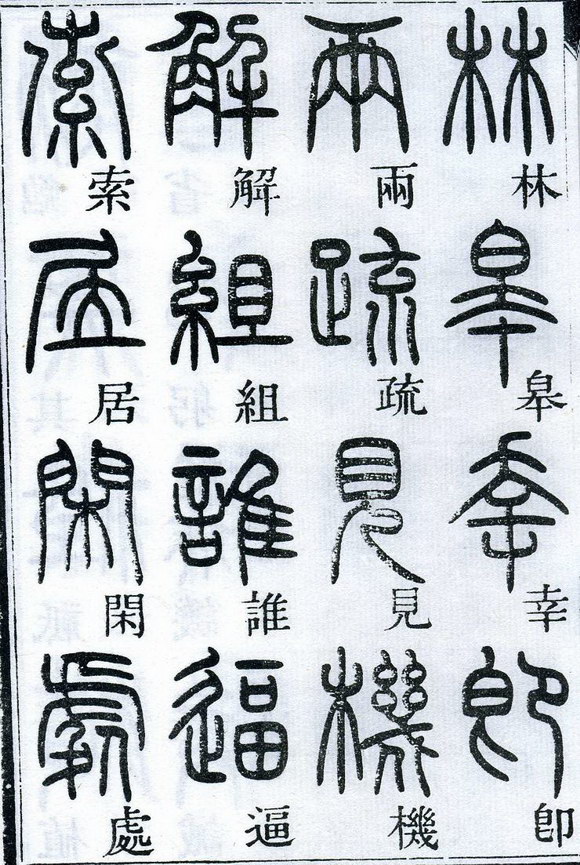 林皋幸卽
兩疏見機
解組誰逼
索居閑處